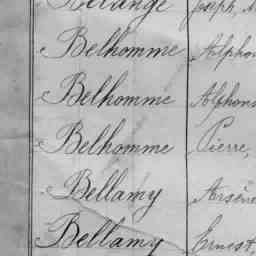 Bélange Joseph,
Belhomme Alphon
Belhomme Alphons
Belhomme Pierre,
Bellamy Arsène
Bellamy Ernest,